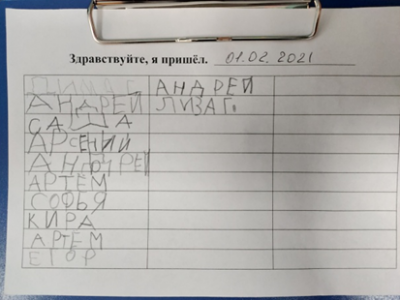 Здравствуйте, я пришёл. 01.02.2021
ДИМА Г.
АНДРЕЙ
САША
АРСЕНИЙ
АНДРЕЙ
АРТЁМ
СОФЬЯ
КИРА
АРТЕМ
ЕГОР
АНДРЕЙ
ЛИЗА Г.